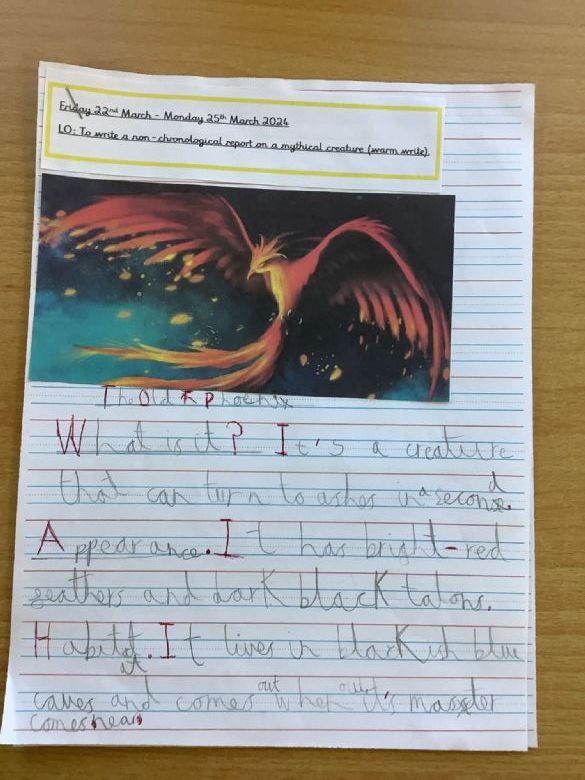 Friday 22nd March - Monday 25th March 2024
LO: To write a non-chronological report on a mythical creature (warm write)
The Old Phoenix
What is it? It's a creature
that can turn to ashes in a second.
Appearance. It has bright-red
feathers and dark black talons.
Habitat. It lives in blackish blue
caves and comes out when it's master
comes near